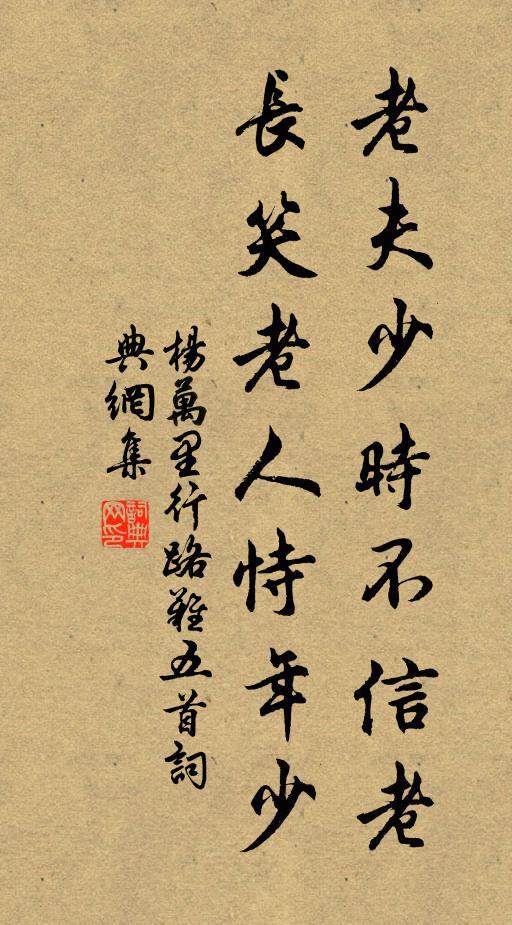 老夫少時不信老
長笑老人恃年少
楊萬里行路難五首詞
典網集
詞典網印